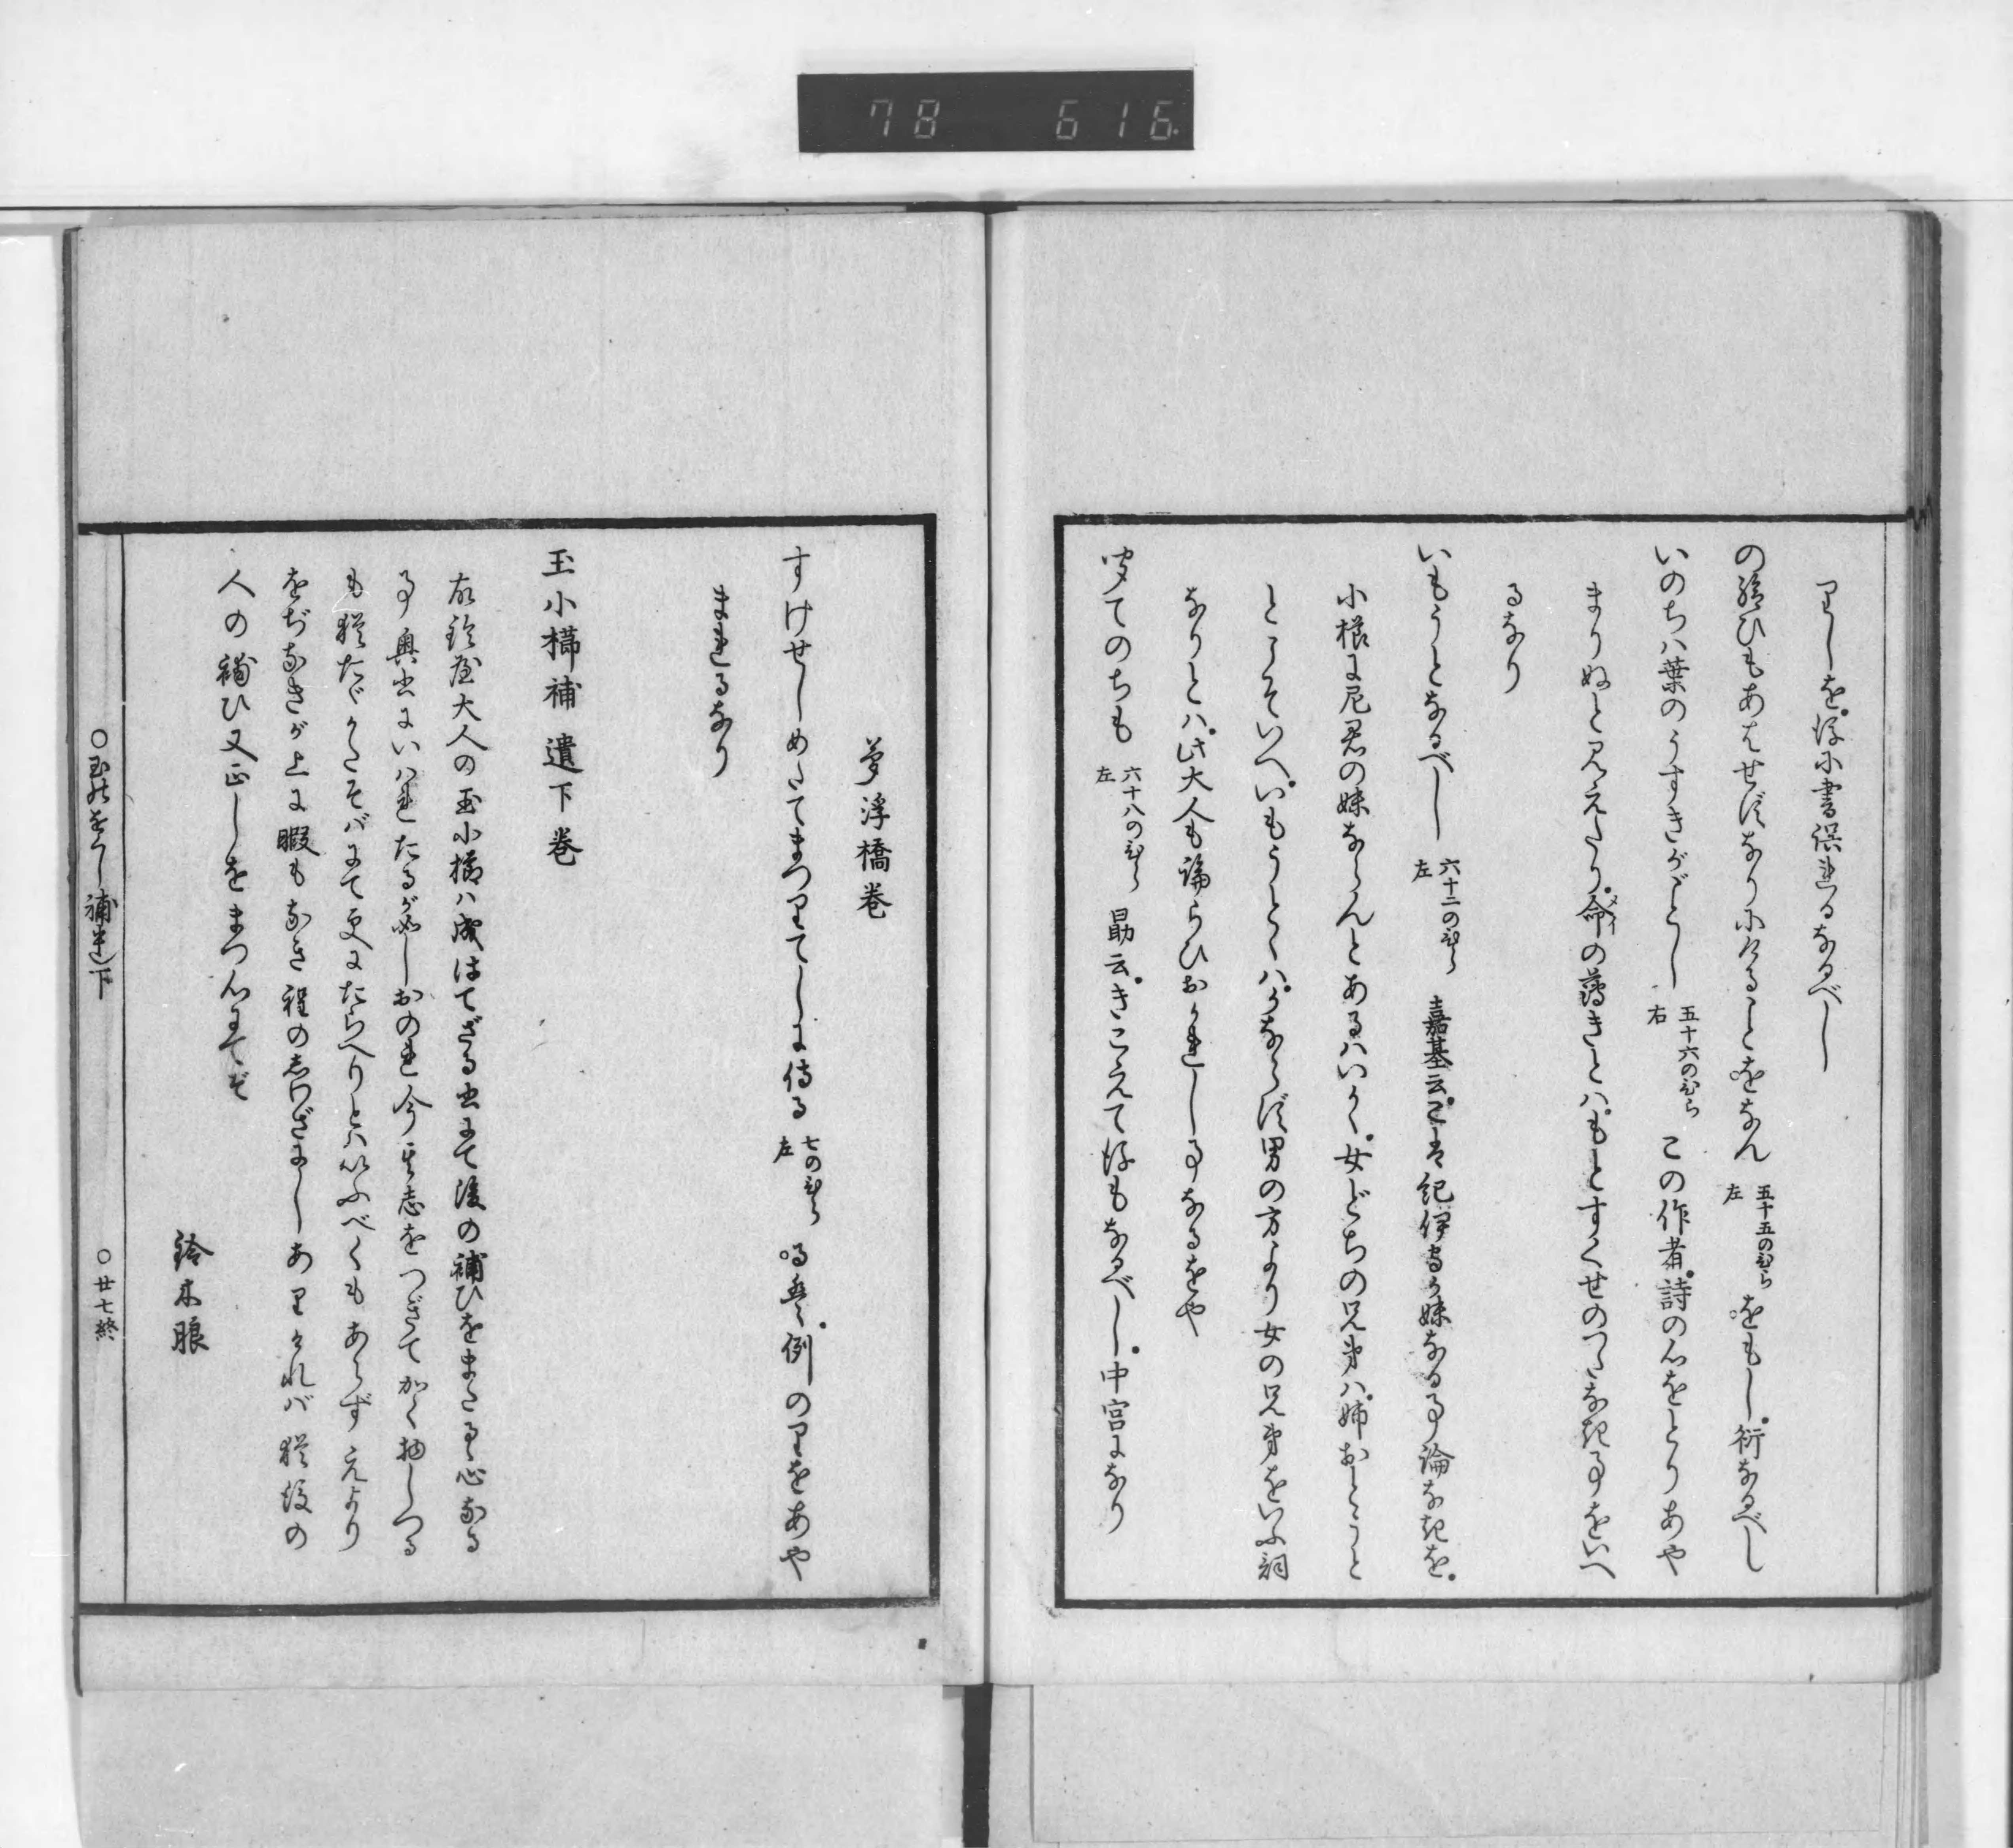 78 616.
りしを。後に書誤れるなるべし
の給ひもあはせずなりにけることをなん 五十五のひら左 をもし。衍なるべし
いのちハ葉のうすきがごとし 五十六のひら右 この作者。詩の心をとりあや
まりぬと見えたり。命の薄きとハ。もとすくせのつたなき事をいへ
るなり
いもうとなるべし 六十二のひら左 嘉基云。こは紀伊守が妹なる事論なきを。
小櫛に尼君の妹ならんとあるハいかゞ。女どちの兄弟ハ。姉おとうと
とこそいへ。いもうとゝハ。かならず男の方より女の兄弟をいふ詞
なりとハ。此大人も論らひおかれし事なるをや
聞てのちも 六十八のひら左 勗云。きこえて後もなるべし。中宮になり
夢浮橋巻
すけせしめたてまつりてしに侍る 七のひら左 るハ。例のりをあや
まれるなり
玉小櫛補遺下巻
右鈴屋大人の玉小櫛ハ成はてざる書にて後の補ひをまたるゝ心なる
事奥書にいハれたるが如しおのれ今其志をつぎてかく物しつる
も猶たゞかたそバにて更にたらへりとハいふべくもあらずえより
をぢなきが上に暇もなき程のしわざにしありければ猶後の
人の補ひ又正しをまつ心にてぞ
鈴木朖
○玉のをぐし補遺下
○廿七終